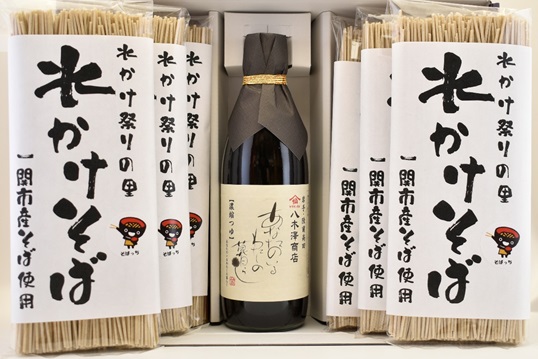 水かけ祭りの里
水かけそば
一関市産そば使用
そばっち
水かけ祭りの里
水かけそば
一関市産そば使用
そばっち
水かけ祭りの里
水かけそば
一関市産そば使用
八木澤商店
【濃縮つゆ】
一関市産そば使用
一関市産そば使用
水かけ祭りの里
水かけそば
一関市産そば使用
そばっち